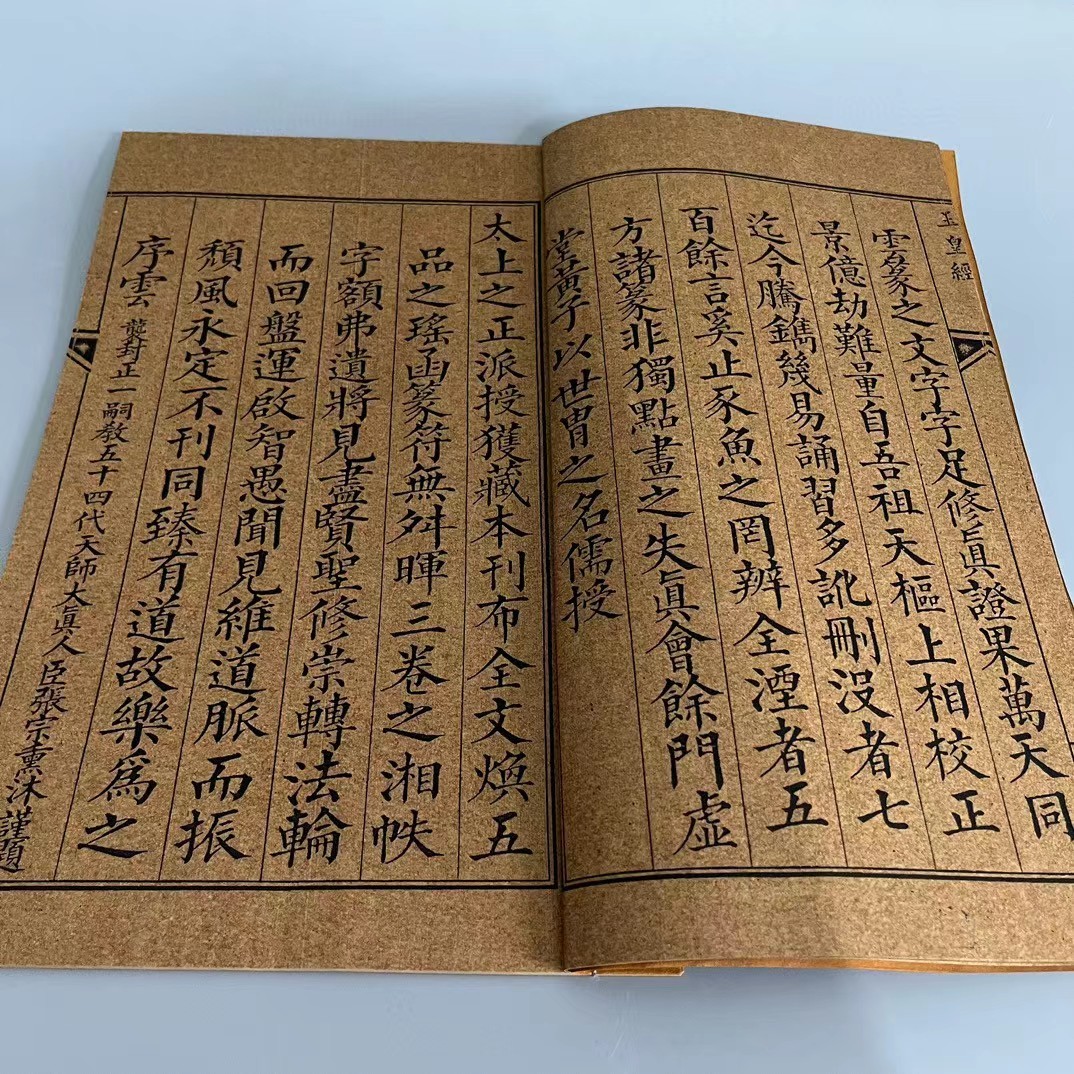 玉皇經
雲篆之文字字足修眞證果萬天同
景億劫難量自吾祖天樞上相校正
迄今騰鐫幾易誦習多訛刪没者七
百餘言奚止豕魚之罔辨全湮者五
方諸篆非獨點畫之失眞會餘門虛
堂黃子以世胄之名儒授
太上之正派授獲藏本刊布全文煥五
品之瑤函篆符無舛暉三卷之湘帙
字額弗遺將見盡賢聖修崇轉法輪
而回盤運啟智愚聞見維道脈而振
頹風永定不刊同臻有道故樂爲之
序雲 襲封正一嗣教五十四代天師大眞人臣張宗熏沐謹題